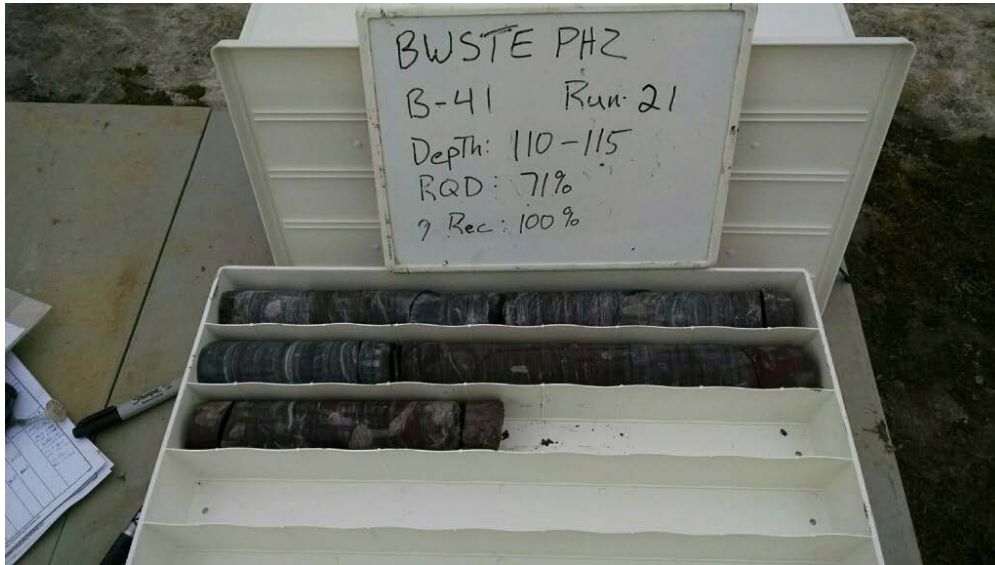 BWSTE PH2
B-41 Run-21
Depth: 110-115
RQD: 71%
% Rec: 100%
Sharpie